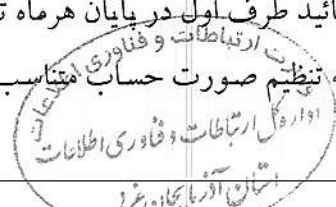 تائید طرف اول در پایان هرماه
تنظیم صورت حساب متناسب
وزارت ارتباطات و فناوری اطلاعات
اداره کل ارتباطات و فناوری اطلاعات
استان آذربایجان غربی